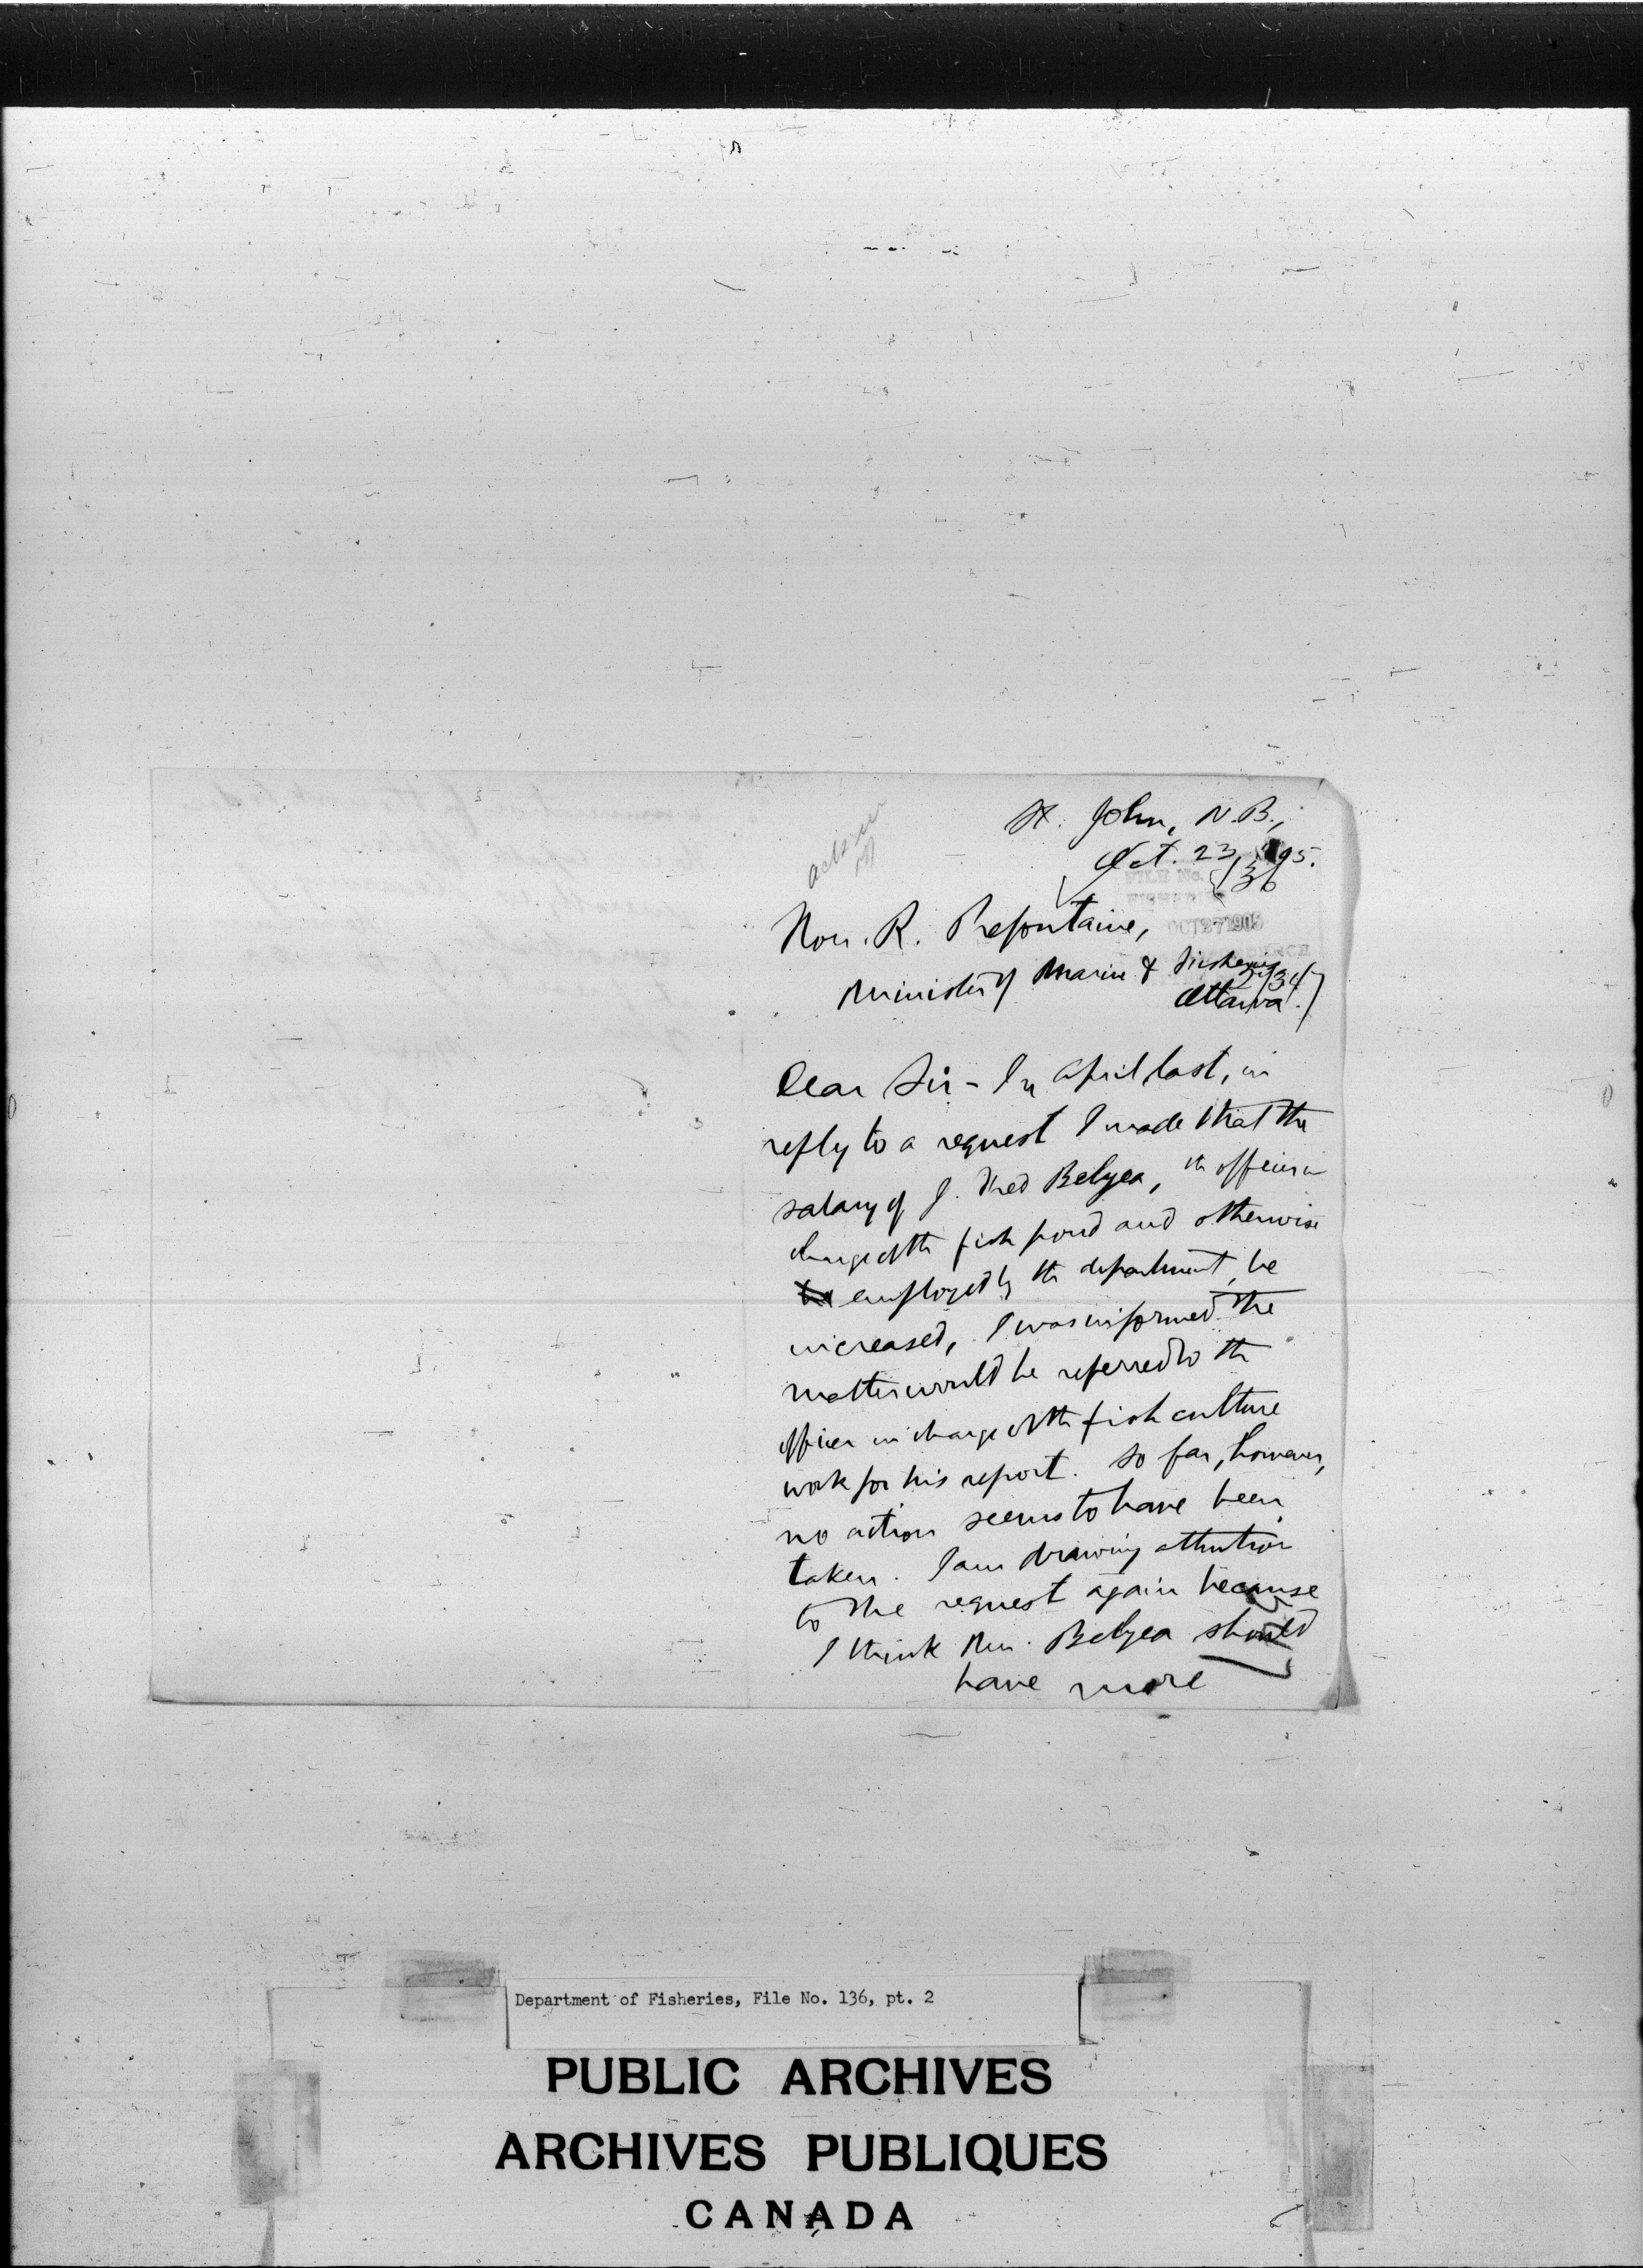 St. John, N.B.,
Oct. 23, '95.
FILE No. 136
OCT 27 1905
Hon. R. Prefontaine,
Minister of Marine & Fisheries
Ottawa.
Dear Sir - In April last, in
reply to a request I made that the
salary of J. Fred Belyea, the officer in
charge of the fish pond and otherwise
employed by the department, be
increased, I was informed the
matter would be referred to the
officer in charge of the fish culture
work for his report. So far, however,
no action seems to have been
taken. I am drawing attention
to the request again because
I think Mr. Belyea should
have more
Department of Fisheries, File No. 136, pt. 2
PUBLIC ARCHIVES
ARCHIVES PUBLIQUES
CANADA